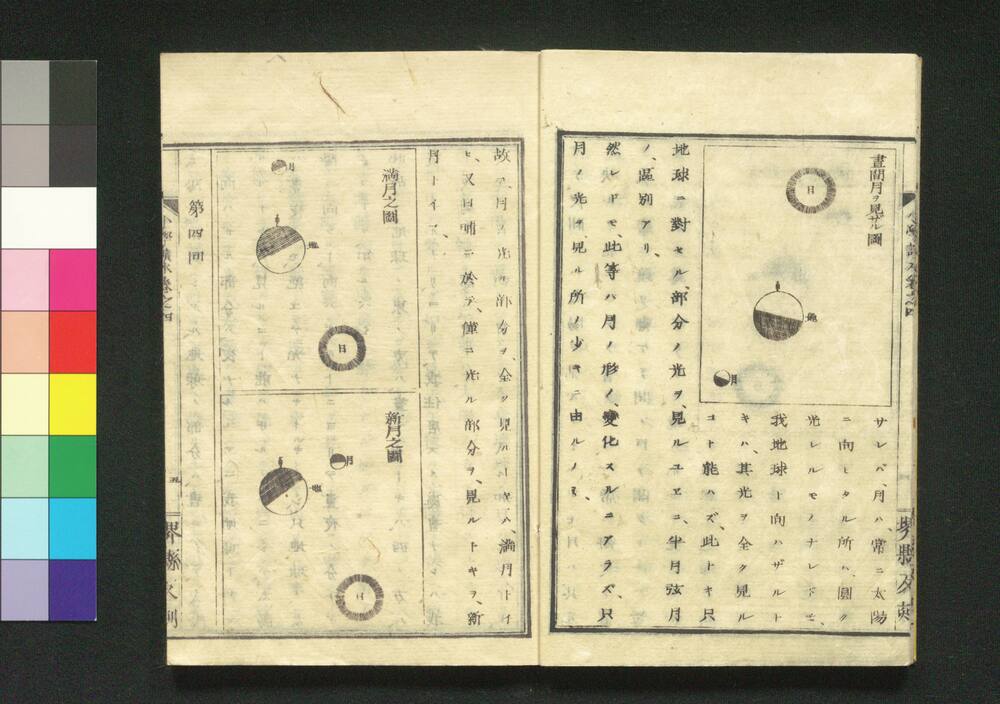 晝間月ヲ見ザル圖
日
地
月
サレバ、月ハ、常ニ太陽
ニ向ヒタル所ハ、圓ク
光レルモノナレドモ、
我地球ト向ハザルト
キハ、其光ヲ全ク見ル
コト能ハズ、此トキ只
地球ニ對セル、部分ノ光ヲ見ルユヱニ、半月弦月
ノ、區別アリ、
然レドモ、此等ハ月ノ形ノ、變化スルニアラズ、只
月ノ光ヲ見ル所ノ、少キニ由ルノミ、
故ニ、月ノ光ル部分ヲ、全ク見ルトキハ、滿月トイ
ヒ、又日晡ニ於テ、僅ニ光ル部分ヲ、見ルトキヲ、新
月トイフ、
滿月之圖
月
地
日
新月之圖
月
地
日
第四回
小學讀本卷之四
五